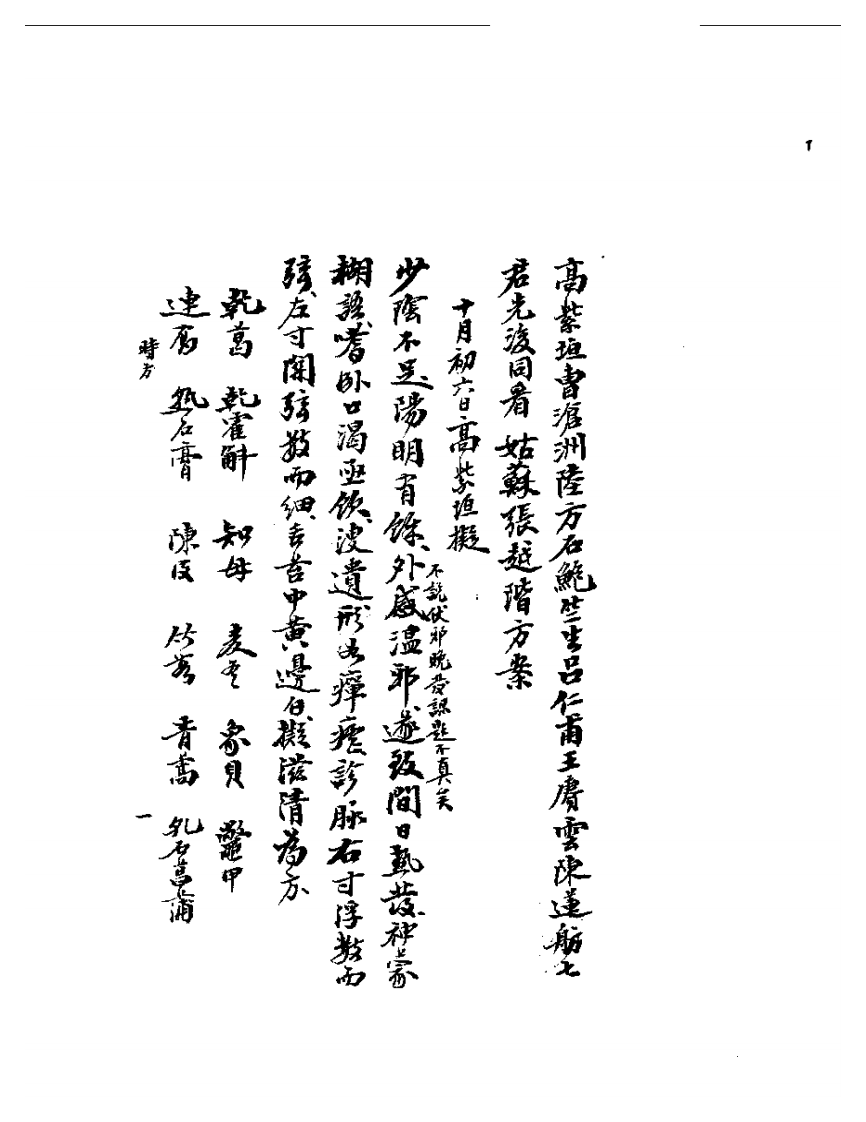 高紫垣曹滄洲陸方石鮑竺生呂仁甫王賡雲陳蓮舫七
君先後同看 姑蘇張越階方案
十月初六日高紫垣擬
不說伏邪晚發認題不真矣
少陰不足、陽明有餘、外感溫邪、遂致間日熱發、神蒙
糊語、嗜卧口渴亟飲、溲遺形如癉瘧、診脉右寸浮數而
弦、左寸關弦數而細、舌苔中黃邊白、擬滋清為方、
乾葛 乾霍斛 知母 麦冬 象貝 鼈甲
連翹 熟石膏 陳皮 竹茹 青蒿 乳石菖蒲
時方
一